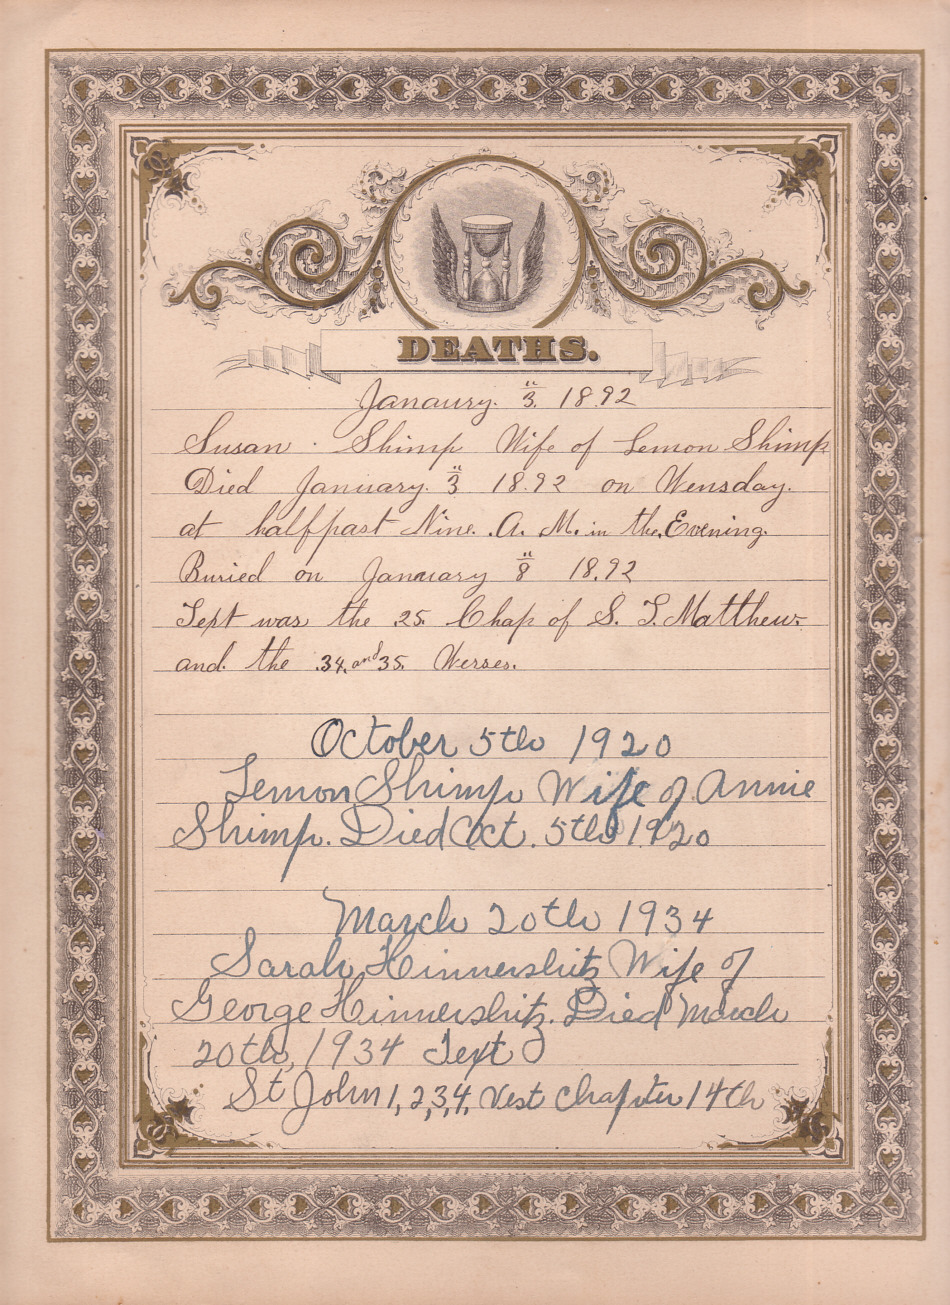 DEATHS.
Janaury. 3. 18.92
Susan . Shimp Wife of Lemon Shimp
Died January. 3 18.92 on Wensday.
at halfpast Nine. .A. M. in the. Evening.
Buried on January 8 18.92
Text was the 25. Chap of S. T. Matthew.
and. the .34. and 35. Werses.
October 5th 1920
Lemon Shimp Wife of Annie
Shimp. Died Oct. 5th 1920
March 20th 1934
Sarah Hinnershitz Wife of
George Hinnershitz. Died March
20th, 1934 Text
St John 1, 2, 3, 4, Vest Chapter 14th